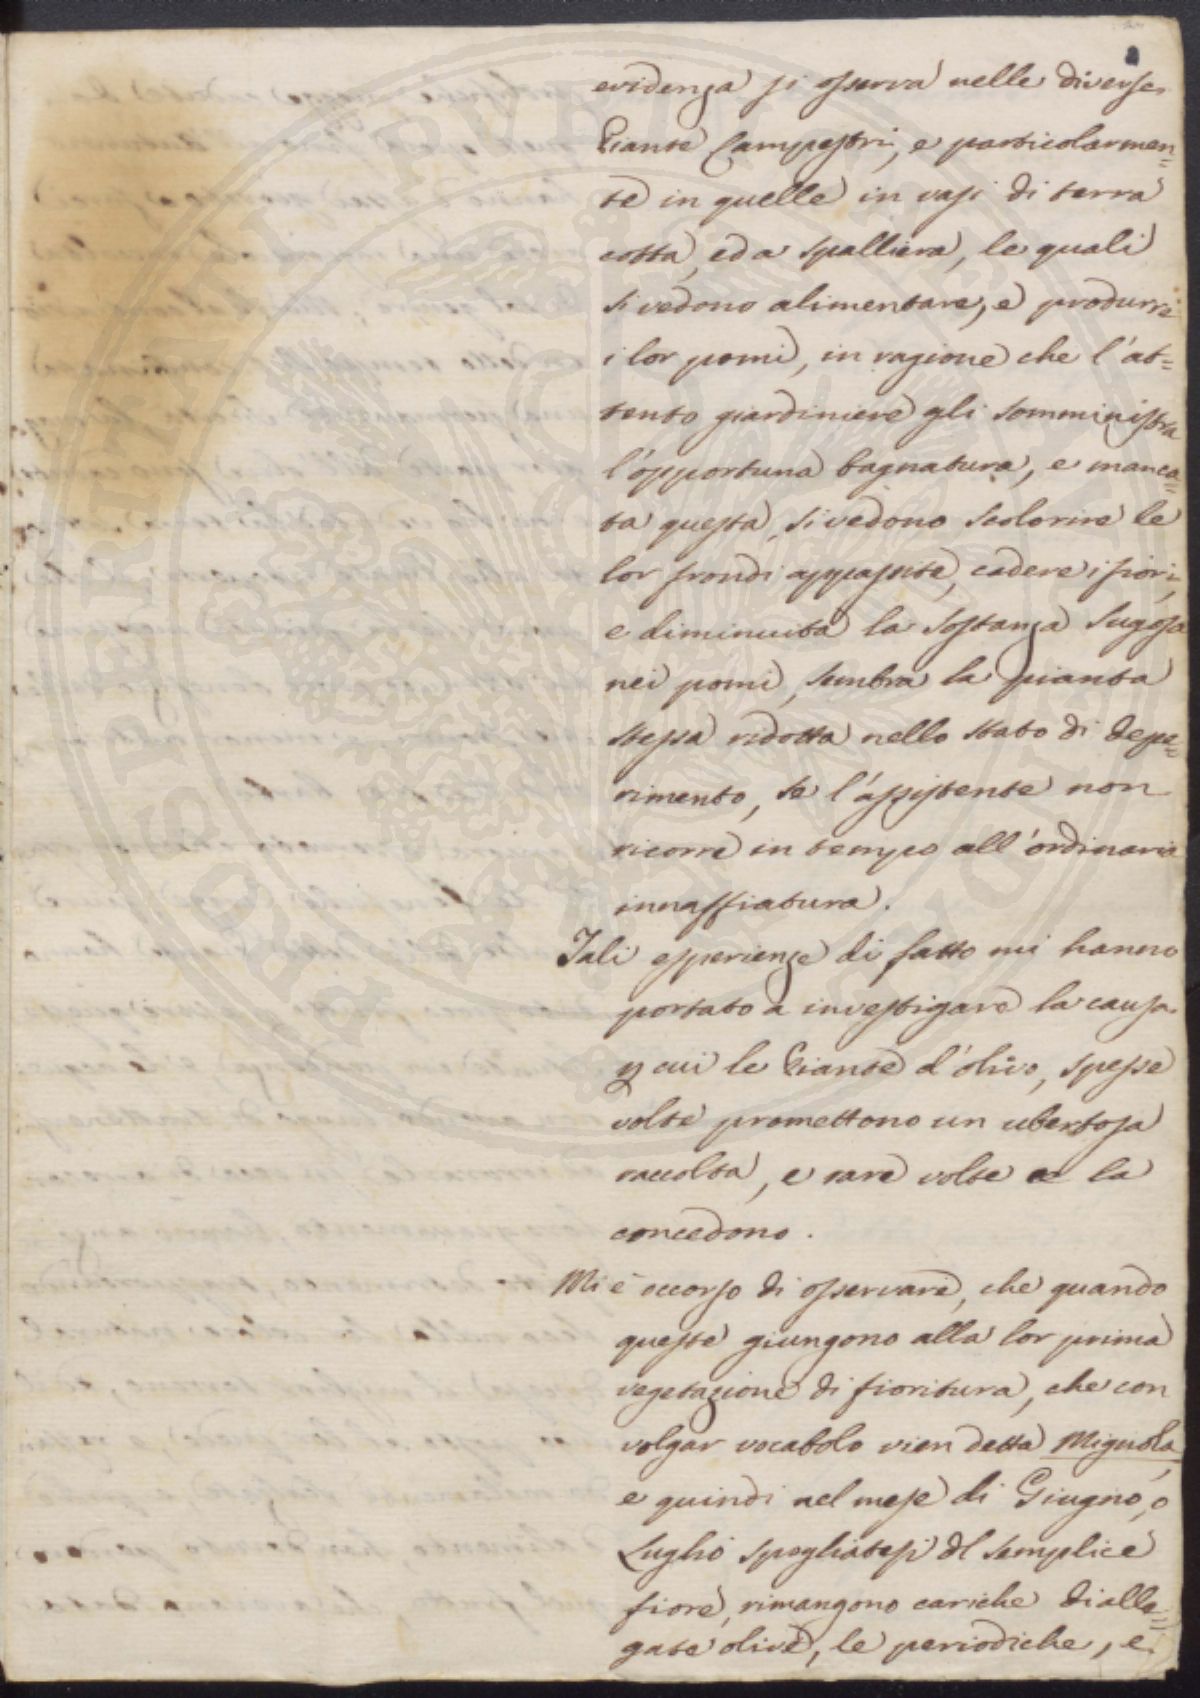 evidenza si osserva nelle diverse
Piante Campestri, e particolarmen=
te in quelle in vasi di terra
cotta, ed a spalliera, le quali
si vedono alimentare, e produrre
i lor pomi, in ragione che l'at=
tento giardiniere gli somministra
l'opportuna bagnatura, e manca=
ta questa, si vedono scolorire le
lor frondi appassite, cadere i fiori,
e diminuita la sostanza sugosa
nei pomi, sembra la pianta
stessa ridotta nello stato di depe=
rimento, se l'assistente non
ricorre in tempo all'ordinaria
innaffiatura.
Tali esperienze di fatto mi hanno
portato a investigare la causa
p cui le Piante d'olivo, spesse
volte promettono un ubertosa
raccolta, e rare volte la
concedono.
Mi è occorso di osservare, che quando
queste giungono alla lor prima
vegetazione di fioritura, che con
volgar vocabolo vien detta Mignola,
e quindi nel mese di Giugno, o
Luglio spogliatesi dl semplice
fiore, rimangono cariche di alle=
gate olive, le periodiche, e
PROSPERITATI PUBLICAE AUGENDAE